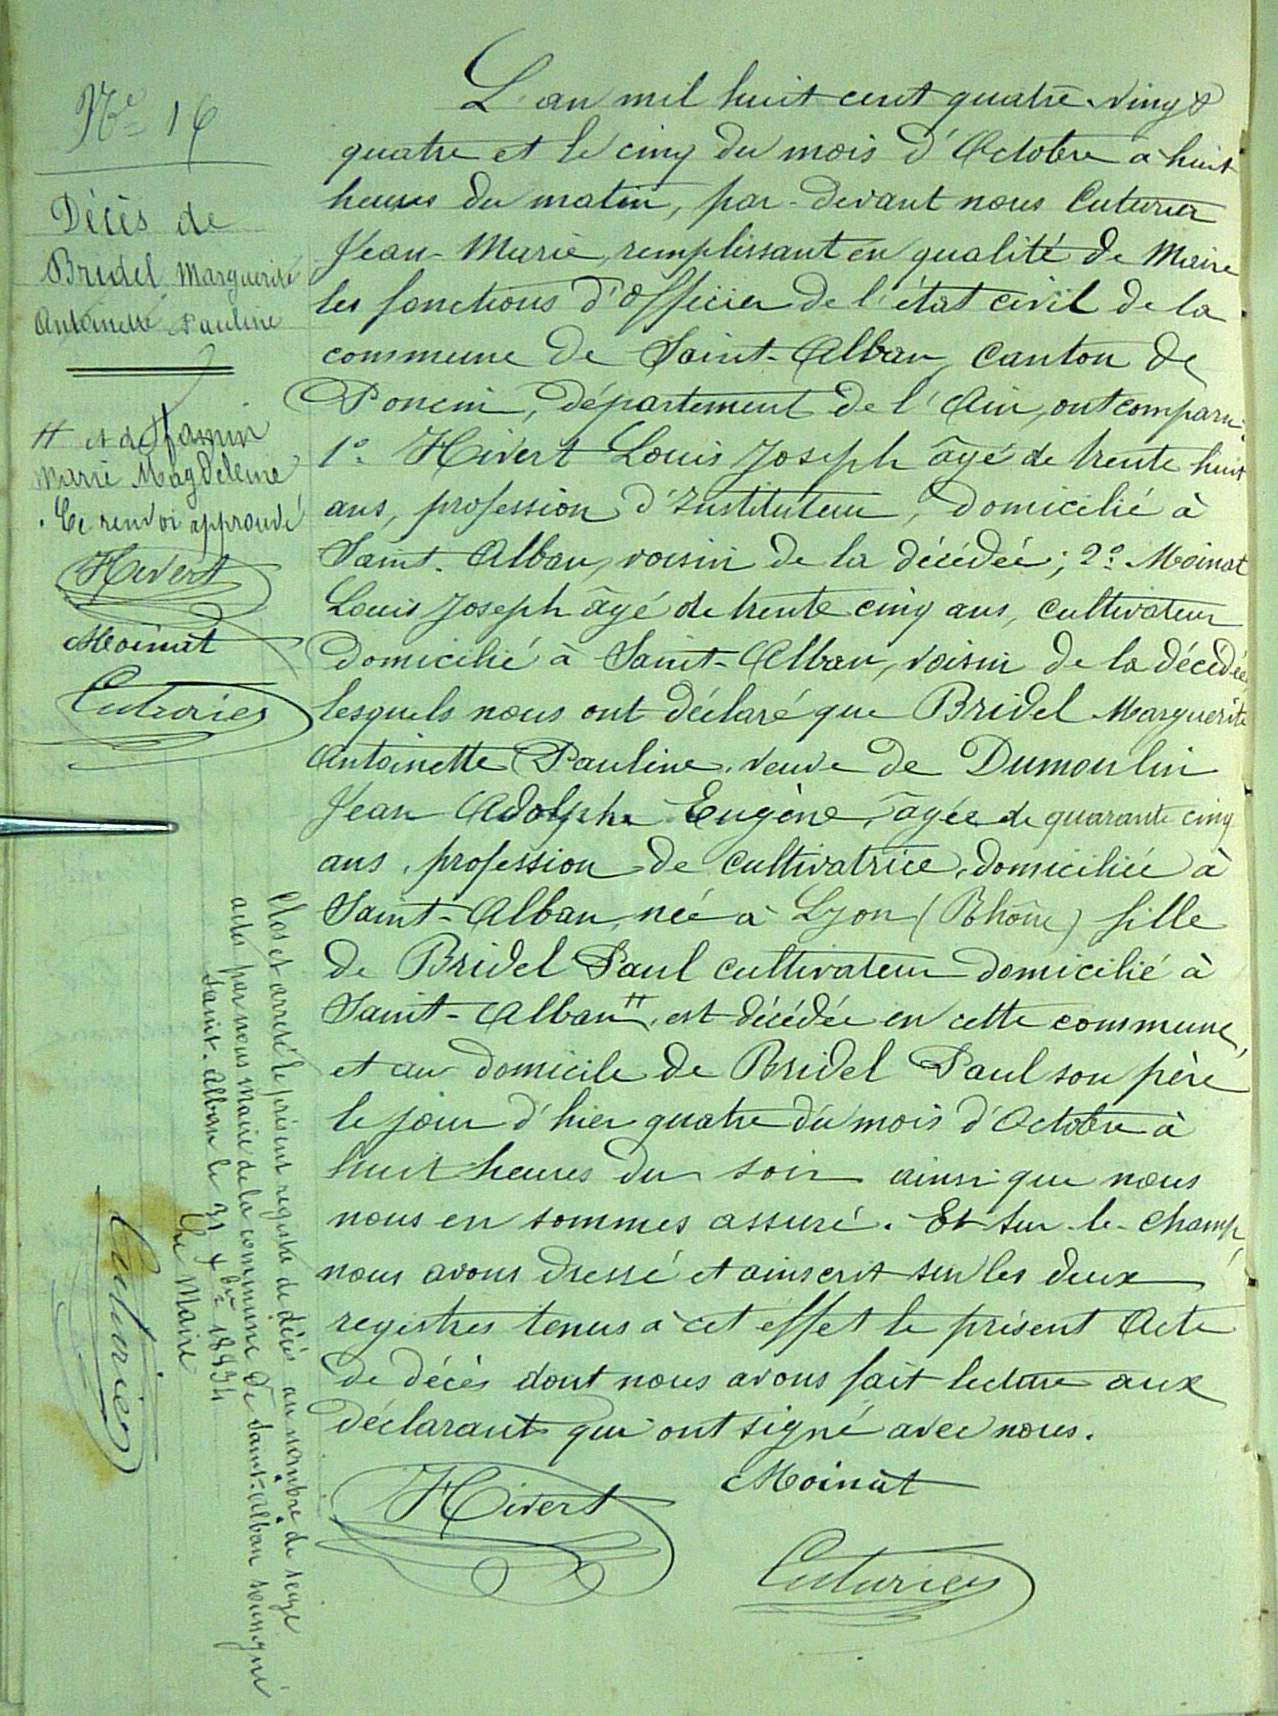 No 16
Décès de
Bridel Marguerite
Antoinette Pauline
# et de Jamin
Marie Magdeleine
. Ce renvoi approuvé
Hivert
Moinat
Cuturier
L'an mil huit cent quatre-vingt
quatre et le cinq du mois d'Octobre à huit
heures du matin, par-devant nous Cuturier
Jean-Marie, remplissant en qualité de Maire
les fonctions d'Officier de l'état civil de la
commune de Saint-Alban, Canton de
Poncin, département de l'Ain, ont comparu:
1o. Hivert Louis Joseph âgé de trente huit
ans, profession d'Instituteur, domicilié à
Saint-Alban, voisin de la décédée; 2o. Moinat
Louis Joseph âgé de trente cinq ans, cultivateur
domicilié à Saint-Alban, voisin de la décédée
lesquels nous ont déclaré que Bridel Marguerite
Antoinette Pauline, veuve de Dumoulin
Jean Adolphe Eugène, âgée de quarante cinq
ans, profession de cultivatrice, domiciliée à
Saint-Alban, née à Lyon (Rhône) fille
de Bridel Paul cultivateur domicilié à
Saint-Alban #, est décédée en cette commune,
et au domicile de Bridel Paul son père
le jour d'hier quatre du mois d'Octobre à
huit heures du soir ainsi que nous
nous en sommes assuré. Et sur-le-champ
nous avons dressé et ainscrit sur les deux
registres tenus à cet effet le présent Acte
de décès dont nous avons fait lecture aux
déclarants qui ont signé avec nous.
Hivert
Moinat
Cuturier
Clos et arrêté le présent registre de décès au nombre de seize
actes par nous maire de la commune de Saint-Alban soussigné
Saint-Alban le 31 Xbre 1884
Le Maire
Cuturier